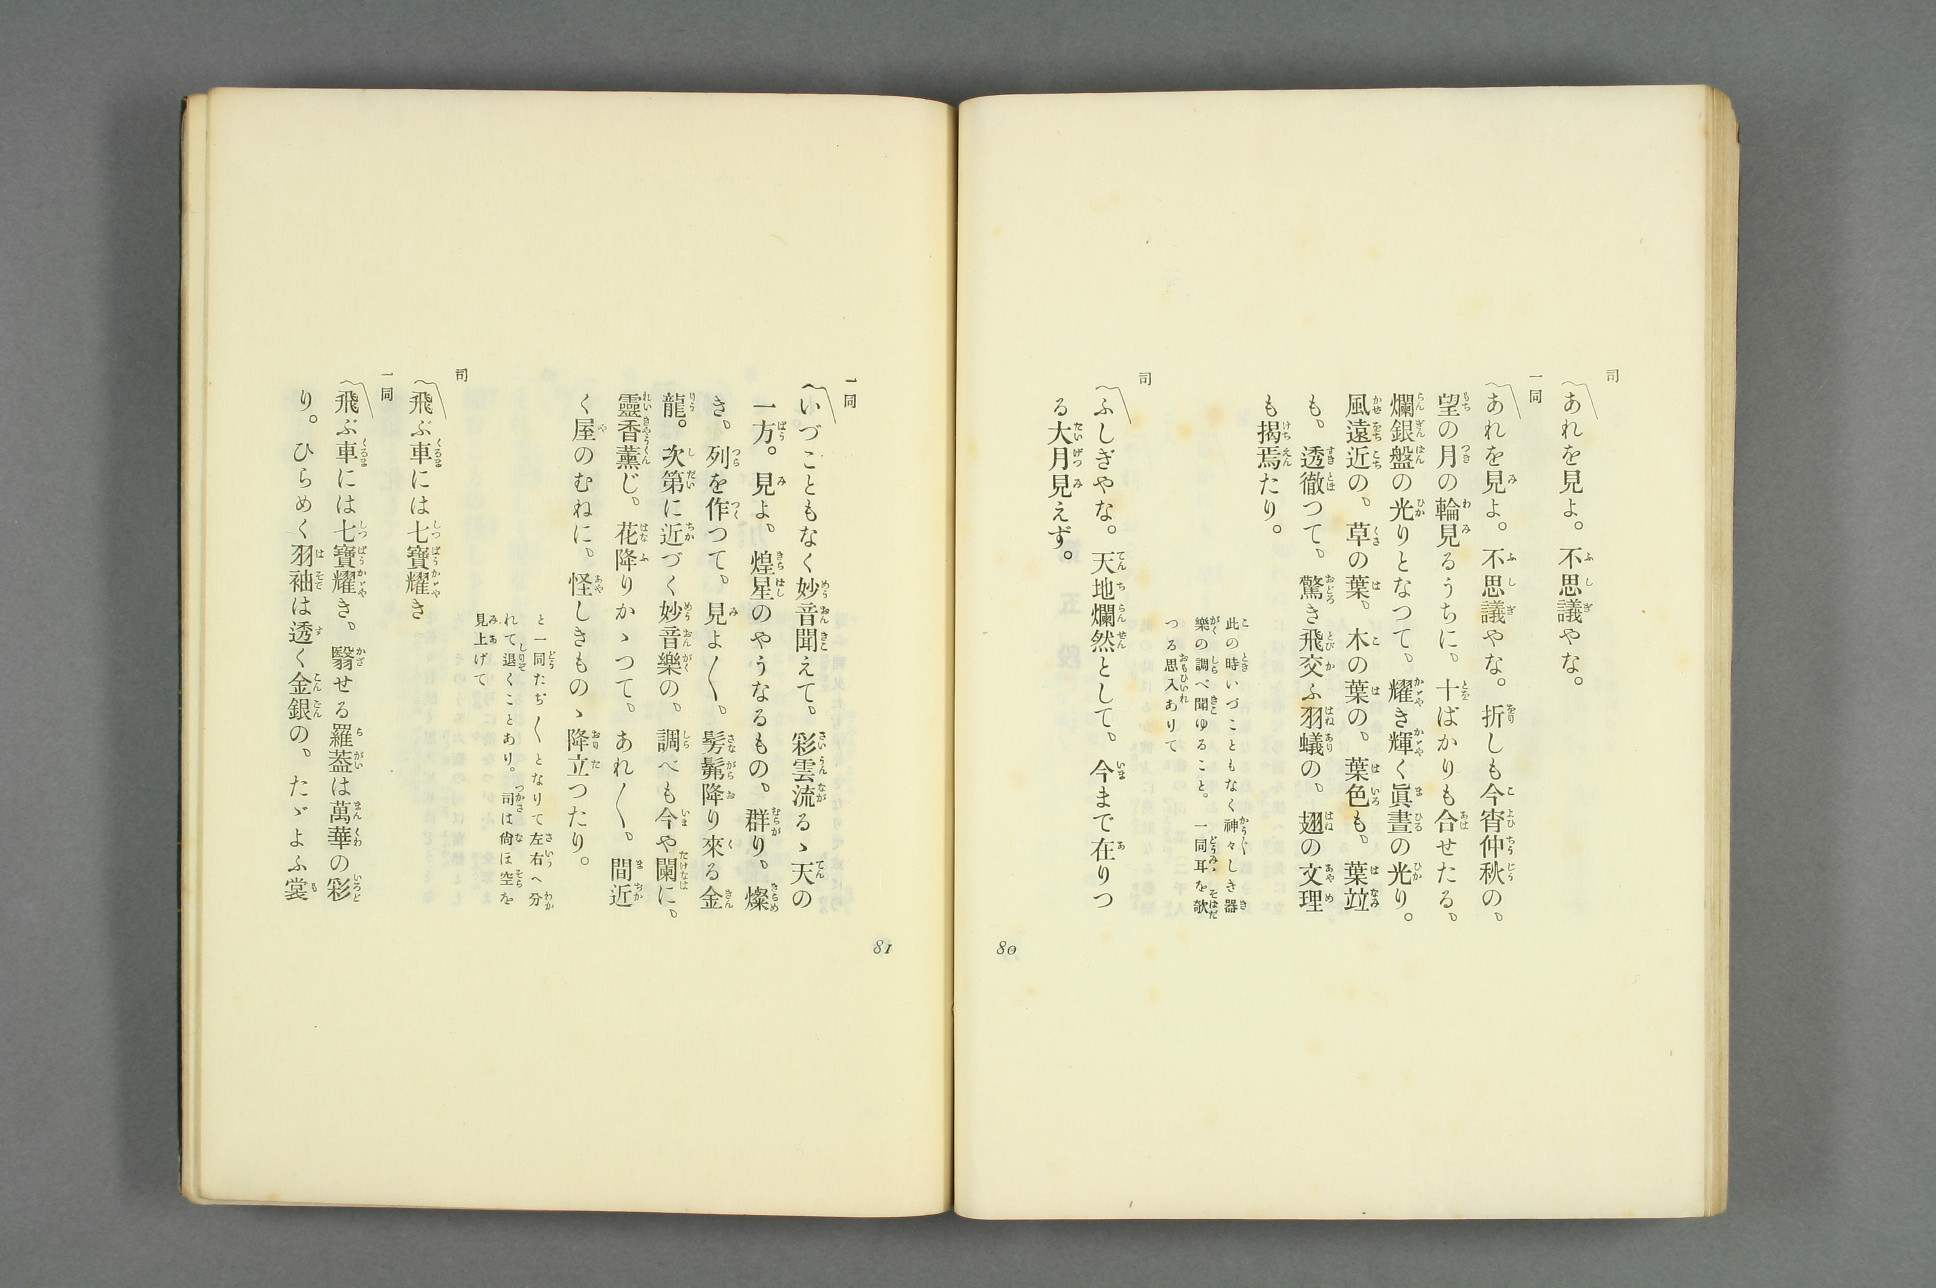 司
〽あれを見よ。不思議やな。
一同
〽あれを見よ。不思議やな。折しも今宵仲秋の、
望の月の輪見るうちに、十ばかりも合せたる、
爛銀盤の光りとなつて、耀き輝く眞晝の光り。
風遠近の、草の葉、木の葉の、葉色も、葉竝
も、透徹つて、驚き飛交ふ羽蟻の、翅の文理
も掲焉たり。
此の時いづこともなく神々しき器
樂の調べ聞ゆること。一同耳を欹
つる思入ありて
司
〽ふしぎやな。天地爛然として、今まで在りつ
る大月見えず。
80
一同
〽いづこともなく妙音聞えて、彩雲流るゝ天の
一方。見よ、煌星のやうなるもの、群り、燦
き、列を作つて、見よ〱、髣髴降り來る金
龍。次第に近づく妙音樂の、調べも今や闌に、
靈香薫じ、花降りかゝつて、あれ〱、間近
く屋のむねに、怪しきものゝ降立つたり。
と一同たぢ〱となりて左右へ分
れて退くことあり。司は尙ほ空を
見上げて
司
〽飛ぶ車には七寶耀き
一同
〽飛ぶ車には七寶耀き、翳せる羅蓋は萬華の彩
り。ひらめく羽袖は透く金銀の、たゞよふ裳
81